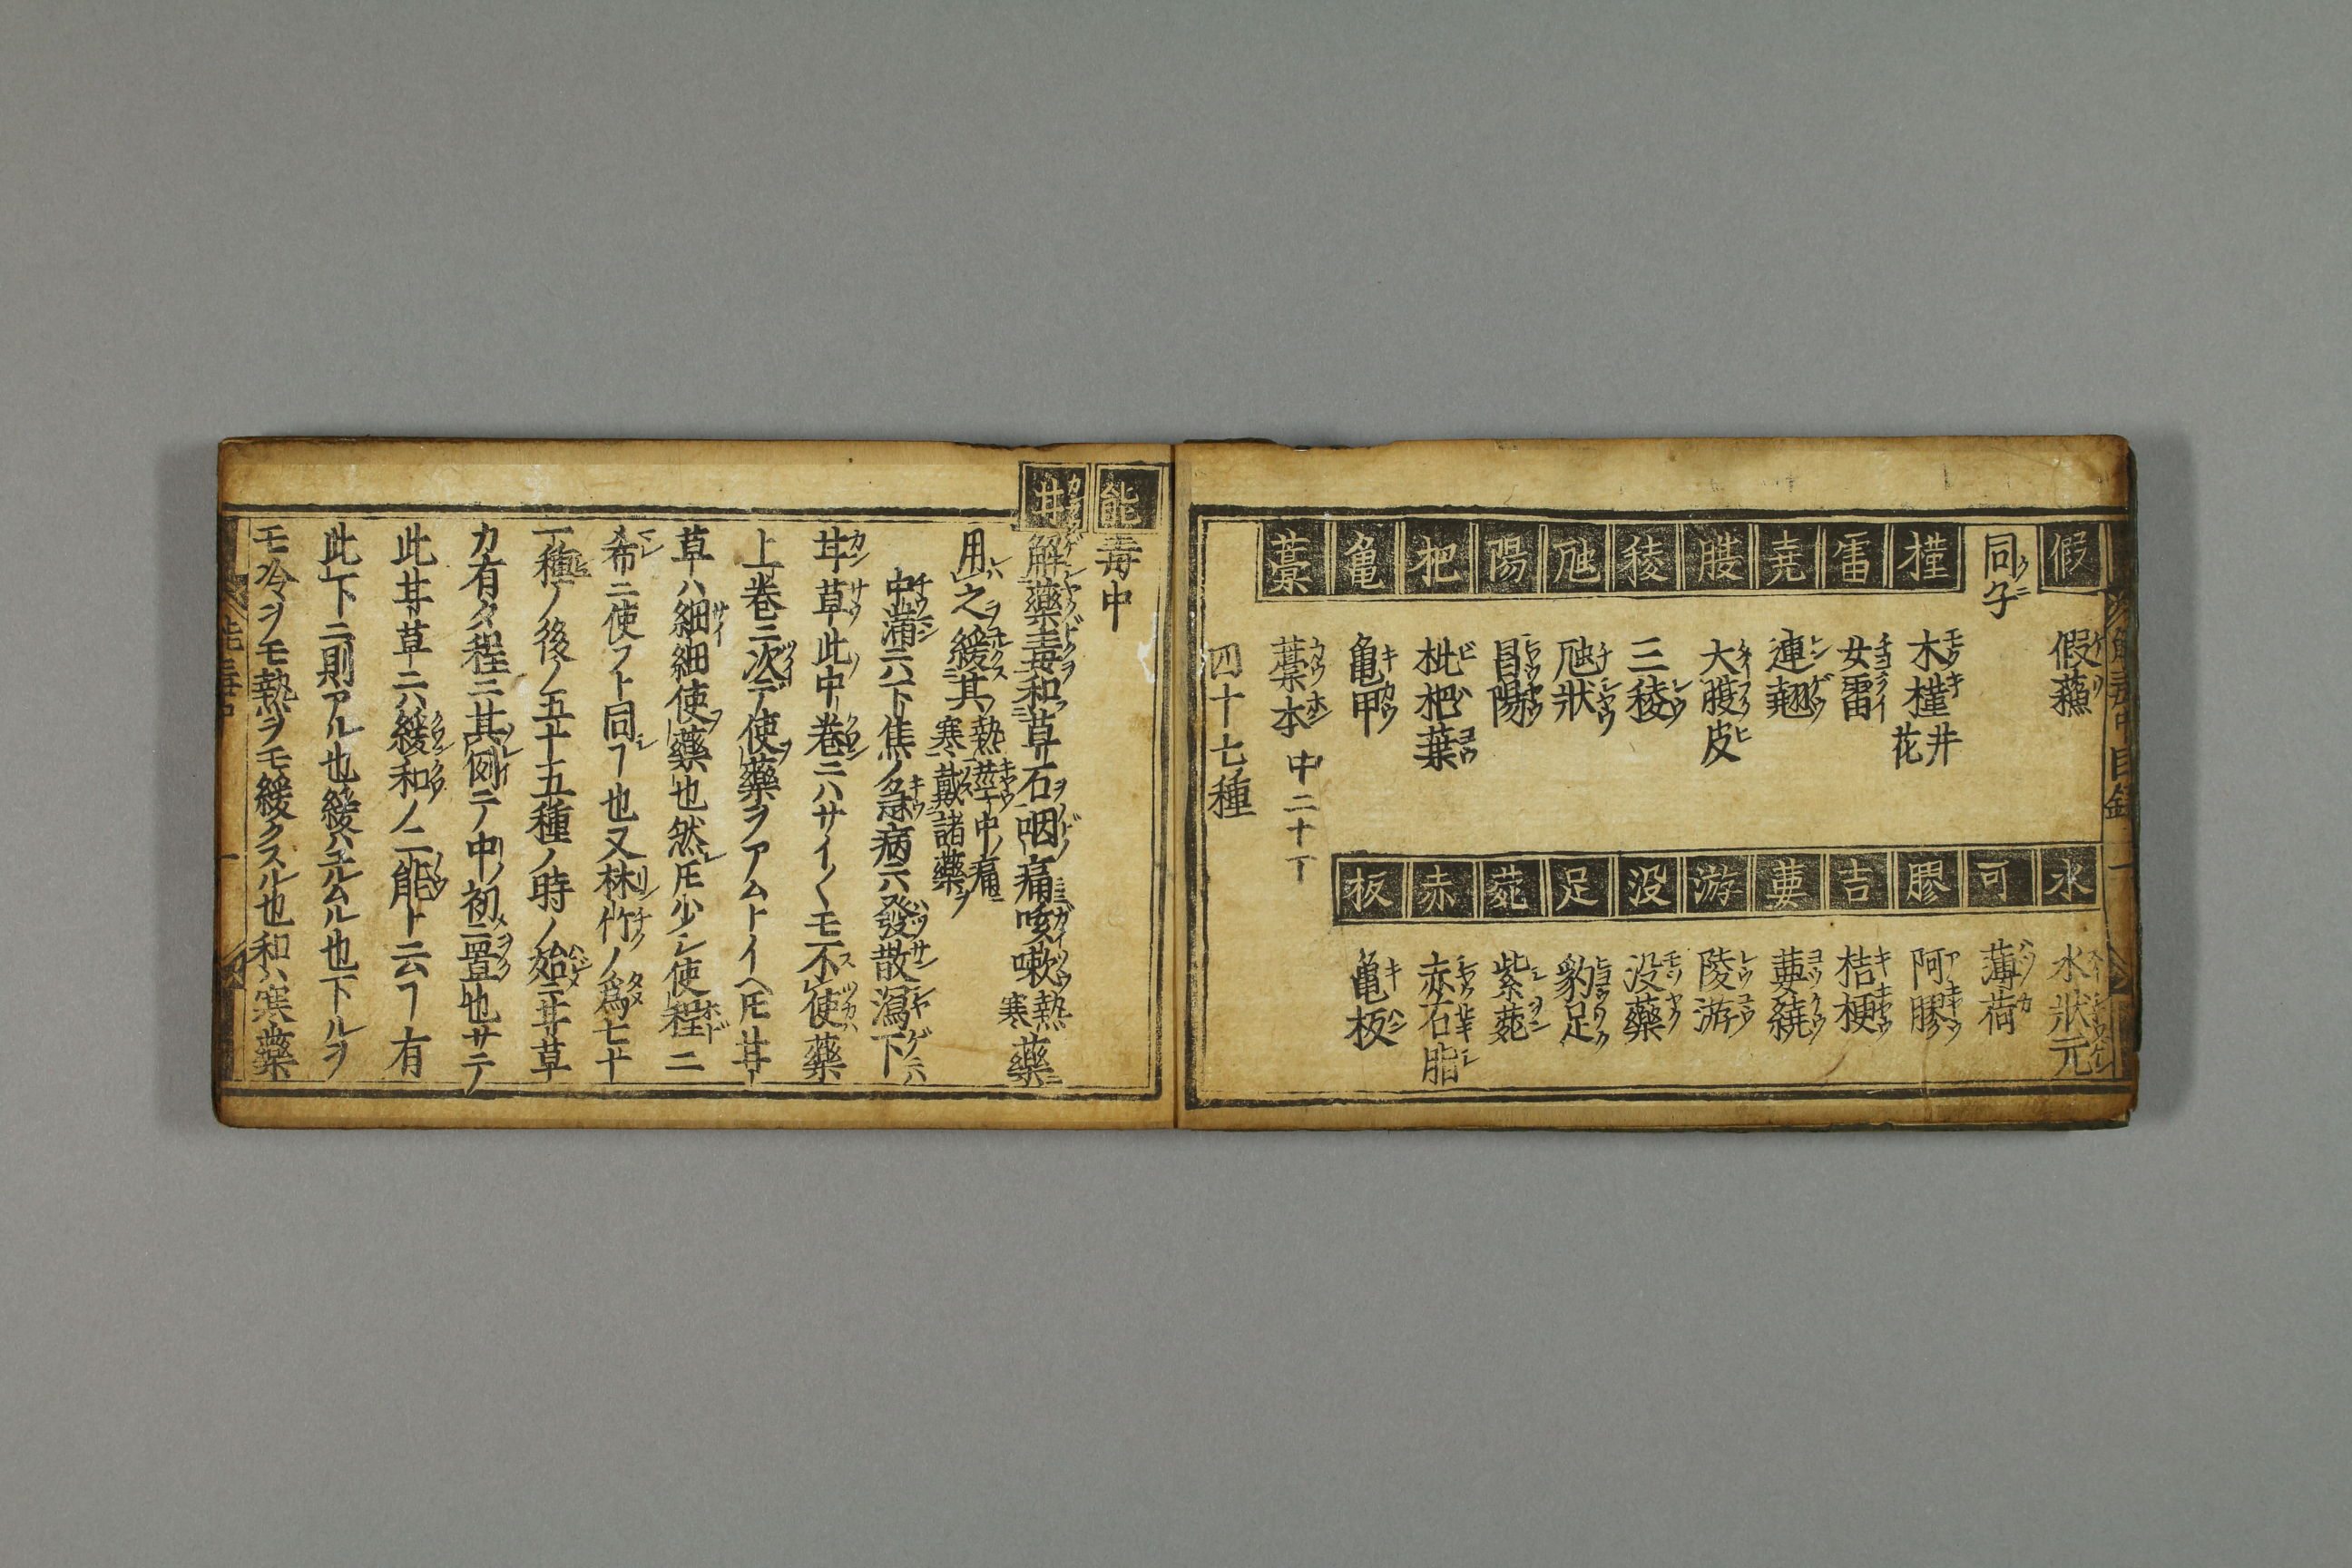 能毒中目録 一
假 假蘓
同子
槿 木槿井花
雷 女雷
尭 連翹
腹 大腹皮
稜 三稜
虺 虺狀
陽 冒陽
杷 枇杷葉
亀 亀甲
藁 藁本 中二十丁
水 水狀元
可 薄荷
膠 阿膠
吉 桔梗
䔧 䔧繞
游 陵游
没 没藥
足 豹足
菀 紫菀
赤 赤石脂
板 亀板
四十七種
能毒中
甘 解藥毒和草石咽痛咳嗽熱寒藥
用之緩其熱莖中痛寒戴諸藥
中滿ニハ下焦ノ急病ニハ發散瀉下ニハ
甘草此中ノ卷ニハサイ〱モ不使藥
上卷ニ次デ使藥ヲアムトイヘ𪜈甘
草ハ細細使藥也然𪜈少シ使程ニ
希ニ使フト同ヿ也又林竹ノ為七十
一種ノ後ノ五十五種ノ時ノ始ニ甘草
カ有タ程ニ其例ニテ中ノ初ニ置也サテ
此甘草ニハ緩和ノ二能ト云ヿ有
此下ニ則アル也緩ハユルムル也下ルヲ
モ冷ヲモ熱ヲモ緩クスル也和ハ寒藥